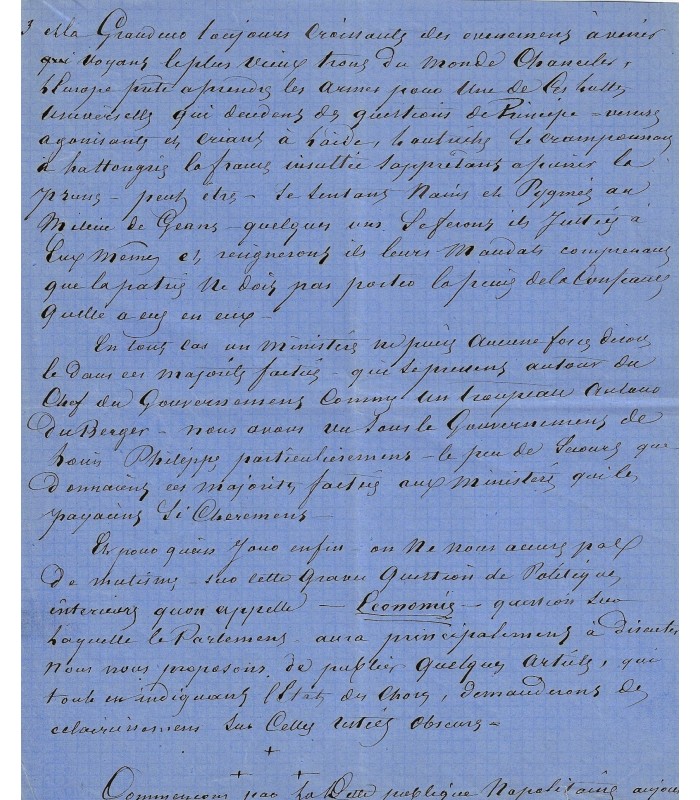 3 et la Grandeur toujours croissante des evenemens à venir
qui voyant le plus vieux trone du Monde Chanceler,
L'Europe prête a prendre les armes pour Une de ces luttes
Universelles qui decident des questions de Principe = venise
agonisante et criant à l'aide, L'autriche se cramponnant
à la hongrie la france insultée s'appretant a punir la
prusse - peut etre - se sentant Nains et Pygmées au
Milieu de Geans - quelques uns se feront ils Justice à
Eux Mêmes et resigneront ils leurs Mandats comprenant
que la patrie Ne doit pas porter la peine de la Confiance
Quelle a eue en eux -
En tout cas un ministère ne puise Aucune force
le dans ces majorités factices - qui se pressent autour du
Chef du Gouvernement Comme Un troupeau Autour
Du Berger - nous avons vu sous le Gouvernement de
Louis Philippe particulierement - le peu de Secours que
donnaient ces majorités factices aux Ministères qui les
payaient si Cherement -
Et pour qu'un Jour enfin - on Ne nous accuse pas
De mutisme - sur cette Grave Question de Politique
interieure qu'on appelle - Economie - question sur
Laquelle le Parlement - aura principalement à discuter
Nous nous proposons de publier Quelques Articles, qui
tout en indiquant l'Etat des Choses, demanderont des
eclaircissemens sur Celles restées obscures =
+
+ +
Commencons par La Dette publique Napolitaine